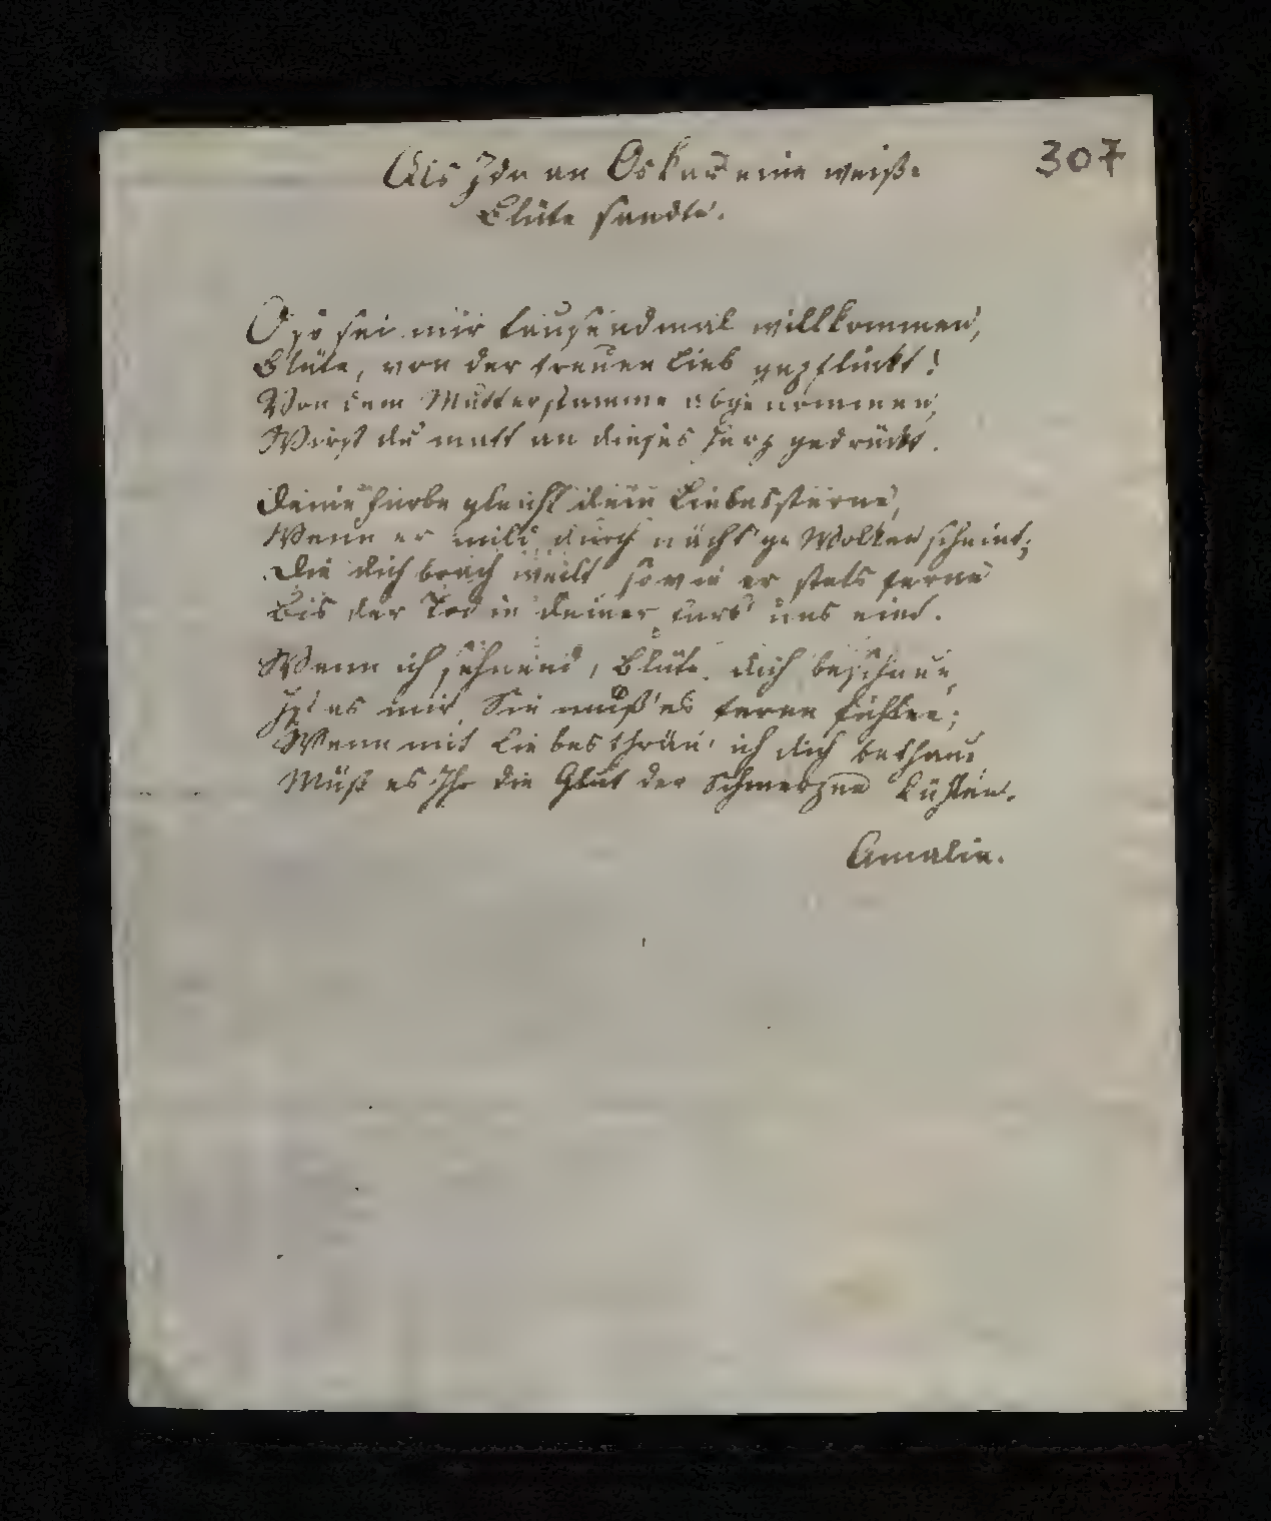 307
Als Ida an Oskar eine weiße
Blüte sandte.
O so sei mir tausendmal willkommen,
Blüte, von der treuen Lieb gepflückt!
Von dem Mutterstamme abgenommen,
Wirst du matt an dieses Herz gedrückt.
Deine Farbe gleicht dem Liebessterne,
Wenn er mild durch nächt'ge Wolken scheint;
Die dich brach weilt so wie er stets ferne
Bis der Tod in deiner Farb' uns eint.
Wenn ich sehnend, Blüte dich beschaue,
Ist es mir, Sie muß es ferne fühlen;
Wenn mit Liebesthrän' ich dich bethaue
Muß es Ihr die Glut der Schmerzen kühlen.
Amalie.